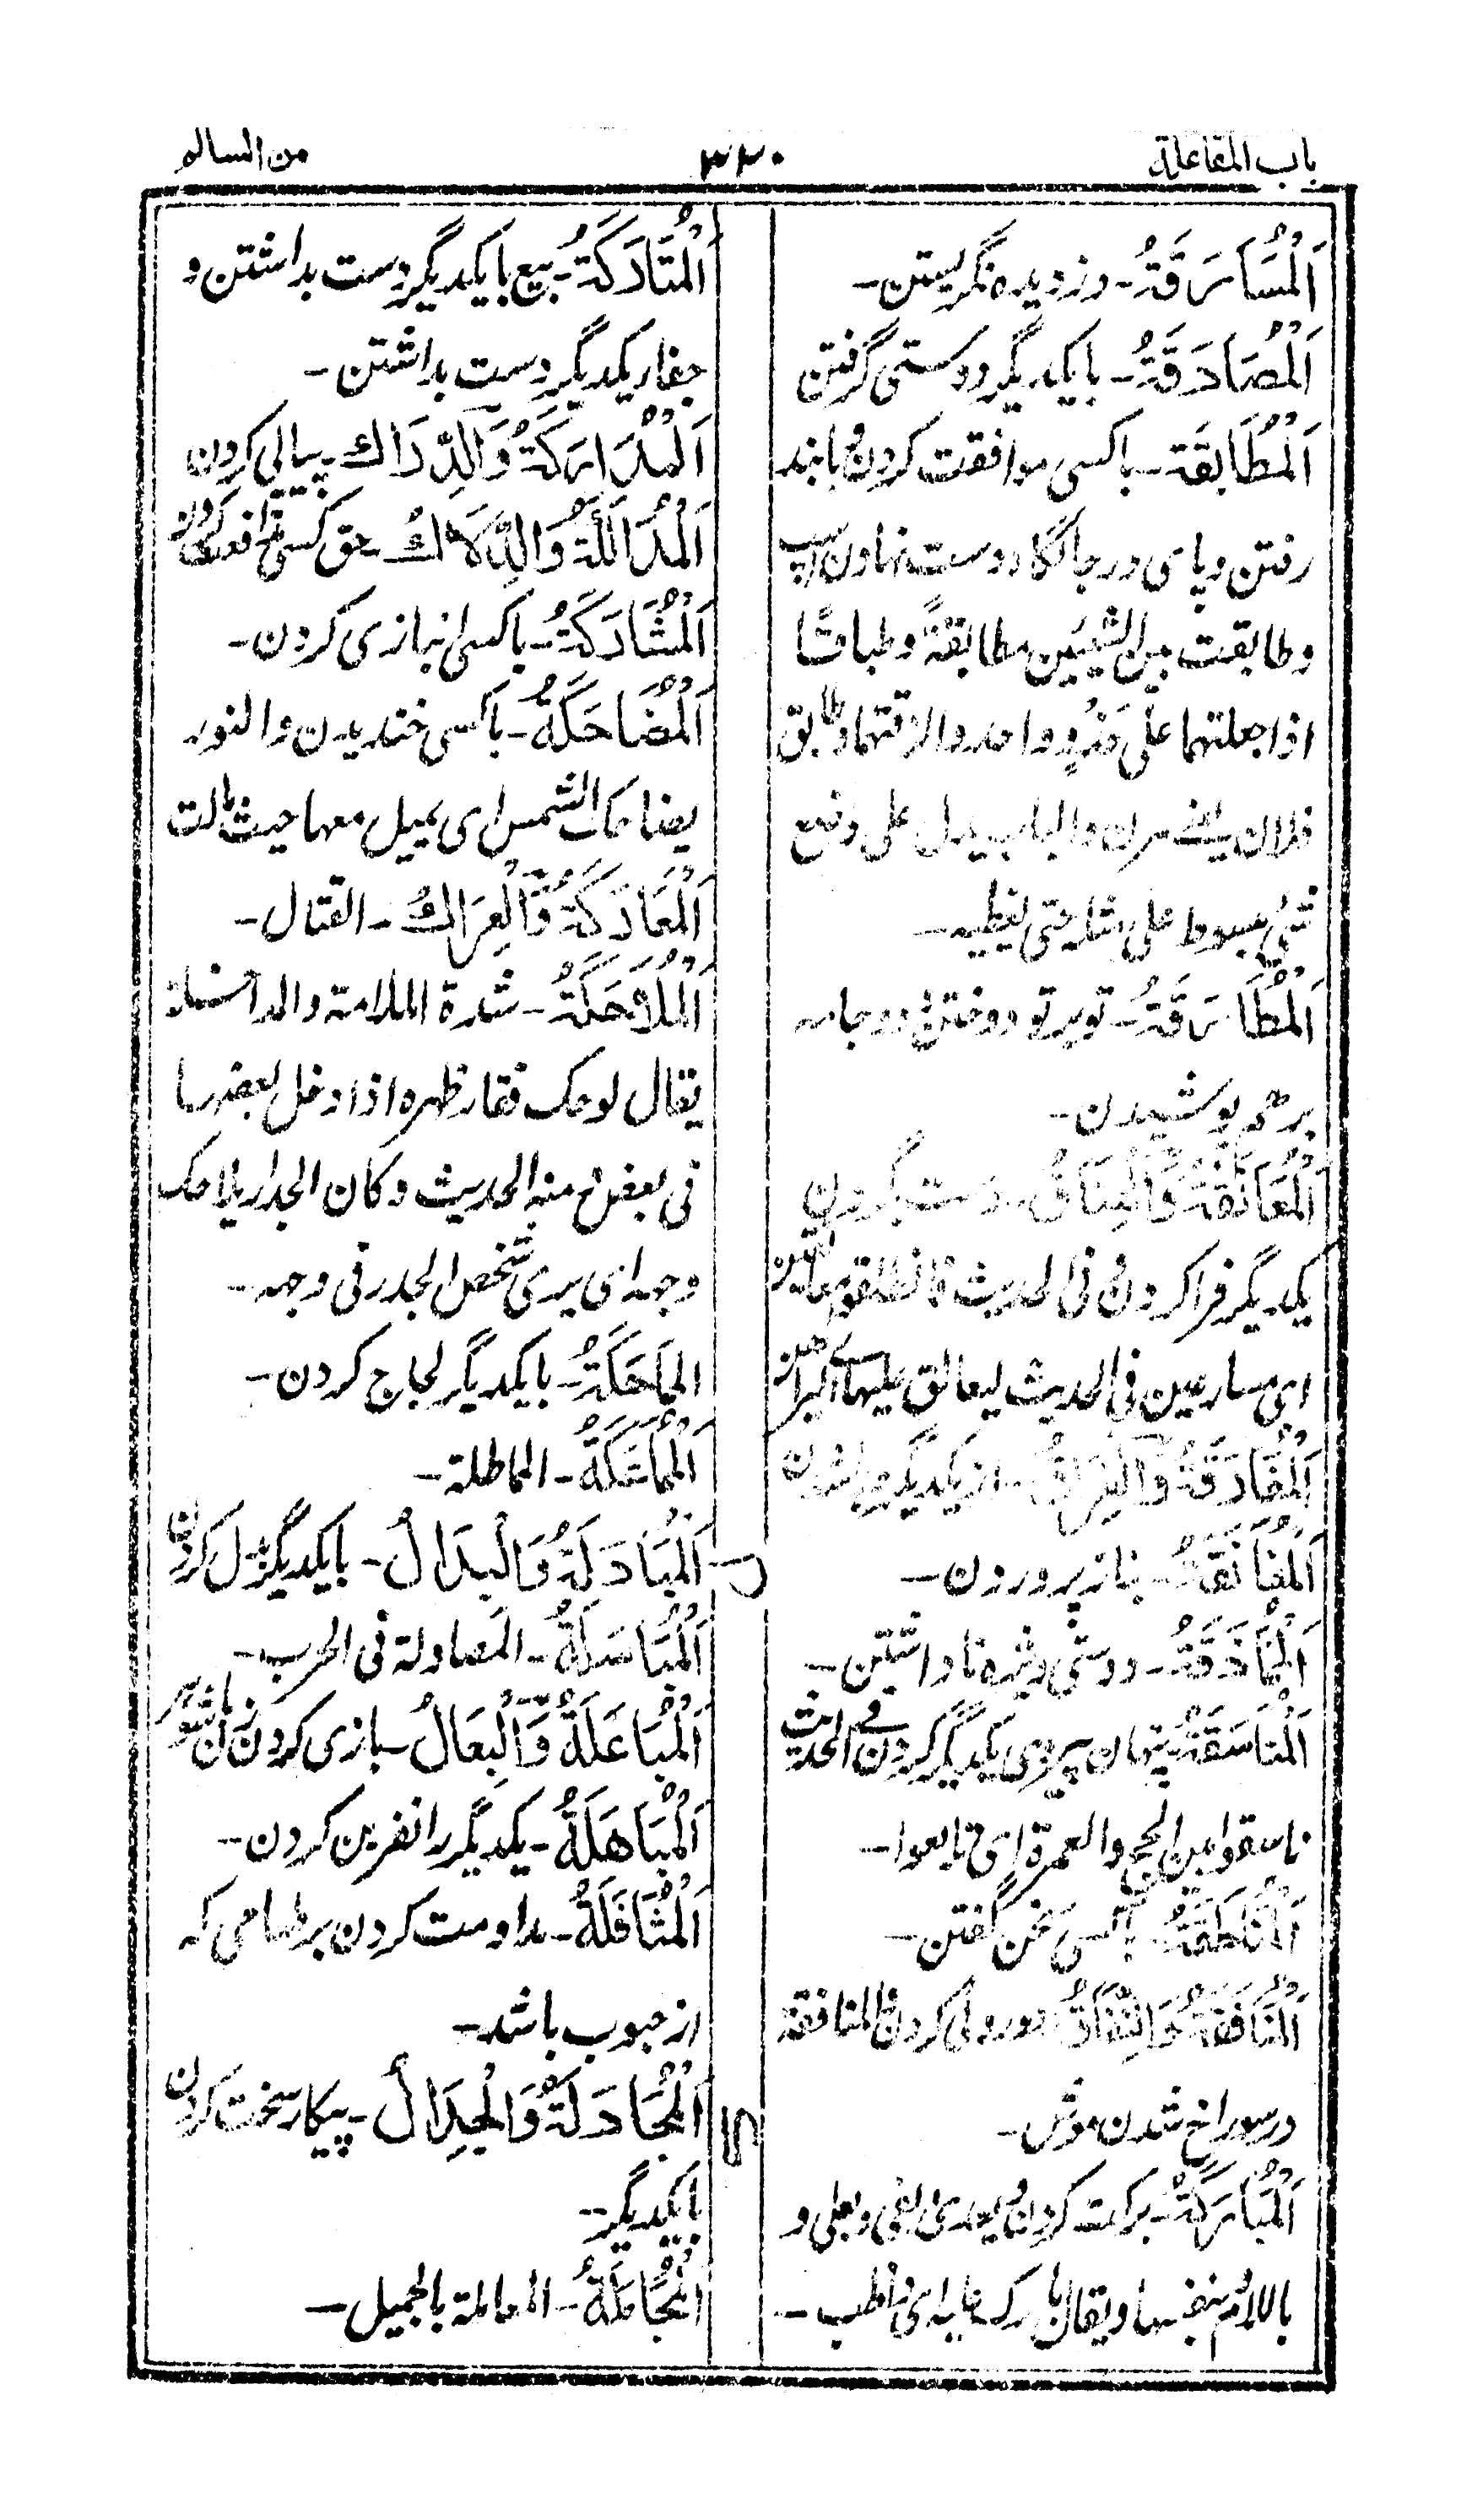 باب المفاعلة
۳۳۰
من السالم
اَلْمُسَارَقَةُ۔ دزدیده نگریستن۔
اَلْمُصَادَقَةُ۔ بایکدیگر دوستی گرفتن
اَلْمُطَابَقَة۔ باکسی موافقت کردن و بابند
رفتن و پای در جایگاه دست نهادن اسپ
وطابقت بین الشیئین مطابقةً وطباقًا
اذا جعلتهما علی حَذْوٍ واحد والزقتهما وطابق
فلان والباب یدل علی وضع
شیٔ مبسوط علی مثله حتی یغطیه۔
اَلْمُطَارَقَةُ۔ توبرتو دوختن و دو جامه
برهم پوشیدن۔
اَلْمُعَانَقَةُ وَالْعِنَاقُ۔ دست بگردن
یکدیگر فراکردن و فی الحدیث فانطلقوا معانقین
ای مسارعین فی الحدیث
اَلْمُفَارَقَةُ وَالْفِرَاقُ۔ از یکدیگر جدا شدن
اَلْمُفَانَقَةُ۔ بناز پروردن۔
اَلْمُمَاذَقَةُ۔ دوستی ویژه ناداشتن۔
اَلْمُنَاسَقَةُ۔ پنهان پیروی یکدیگر کردن و فی الحدیث
ناسقوا بین الحج والعمرة ای تابعوا۔
اَلْمُنَاطَقَةُ۔ باکسی سخن گفتن۔
اَلْمُنَافَقَةُ وَالنِّفَاقُ۔ دوروئی کردن و المنافقة
درسوراخ شدن موش۔
اَلْمُبَارَكَةُ۔ برکت کردن و یعدی بفی و بعلی و
باللام وبنفسها ویقال بارک علیه ای واظب۔
اَلْمُتَارَكَةُ۔ بیع بایکدیگر دست بداشتن و
جفار یکدیگر دست بداشتن۔
اَلْمُدَارَكَةُ وَالدِّرَاك۔ پیاپی کردن
اَلْمُدَالَكَةُ وَالدِّلَاكُ۔ حق کسی مدافعت کردن
اَلْمُشَارَكَةُ۔ باکسی انبازی کردن۔
اَلْمُضَاحَكَةُ۔ باکسی خندیدن والنور
یضاحک الشمس ای یمیل معها حیث مالت
اَلْمُعَارَكَةُ وَالْعِرَاكُ۔ القتال۔
اَلْمُلَاحَكَةُ۔ شدة الملامة والمداخلة
یقال لوحک فقار ظهره اذا دخل بعضها
فی بعض و منه الحدیث وکان الجدار یلاحک
وجهه ای یری شخص الجدر فی وجهه۔
المماحَكَةُ۔ بایکدیگر لجاج کردن۔
اَلْمُمَاشَكَةُ۔ المماطلة۔
ل
اَلْمُبَادَلَةُ وَالْبِدَالُ۔ بایکدیگر بدل کردن
اَلْمُبَاسَلَةُ۔ المصاولة فی الحرب۔
اَلْمُبَاعَلَةُ وَالْبِعَالُ۔ بازی کردن زن باشوهر
اَلْمُبَاهَلَةُ۔ یکدیگر را نفرین کردن۔
اَلْمُثَافَلَةُ۔ مداومت کردن برطعامی که
از حبوب باشد۔
اَلْمُجَادَلَةُ وَالْجِدَالُ۔ پیکار سخت کردن
بایکدیگر۔
اَلْمُجَامَلَةُ۔ المعاملة بالجمیل۔